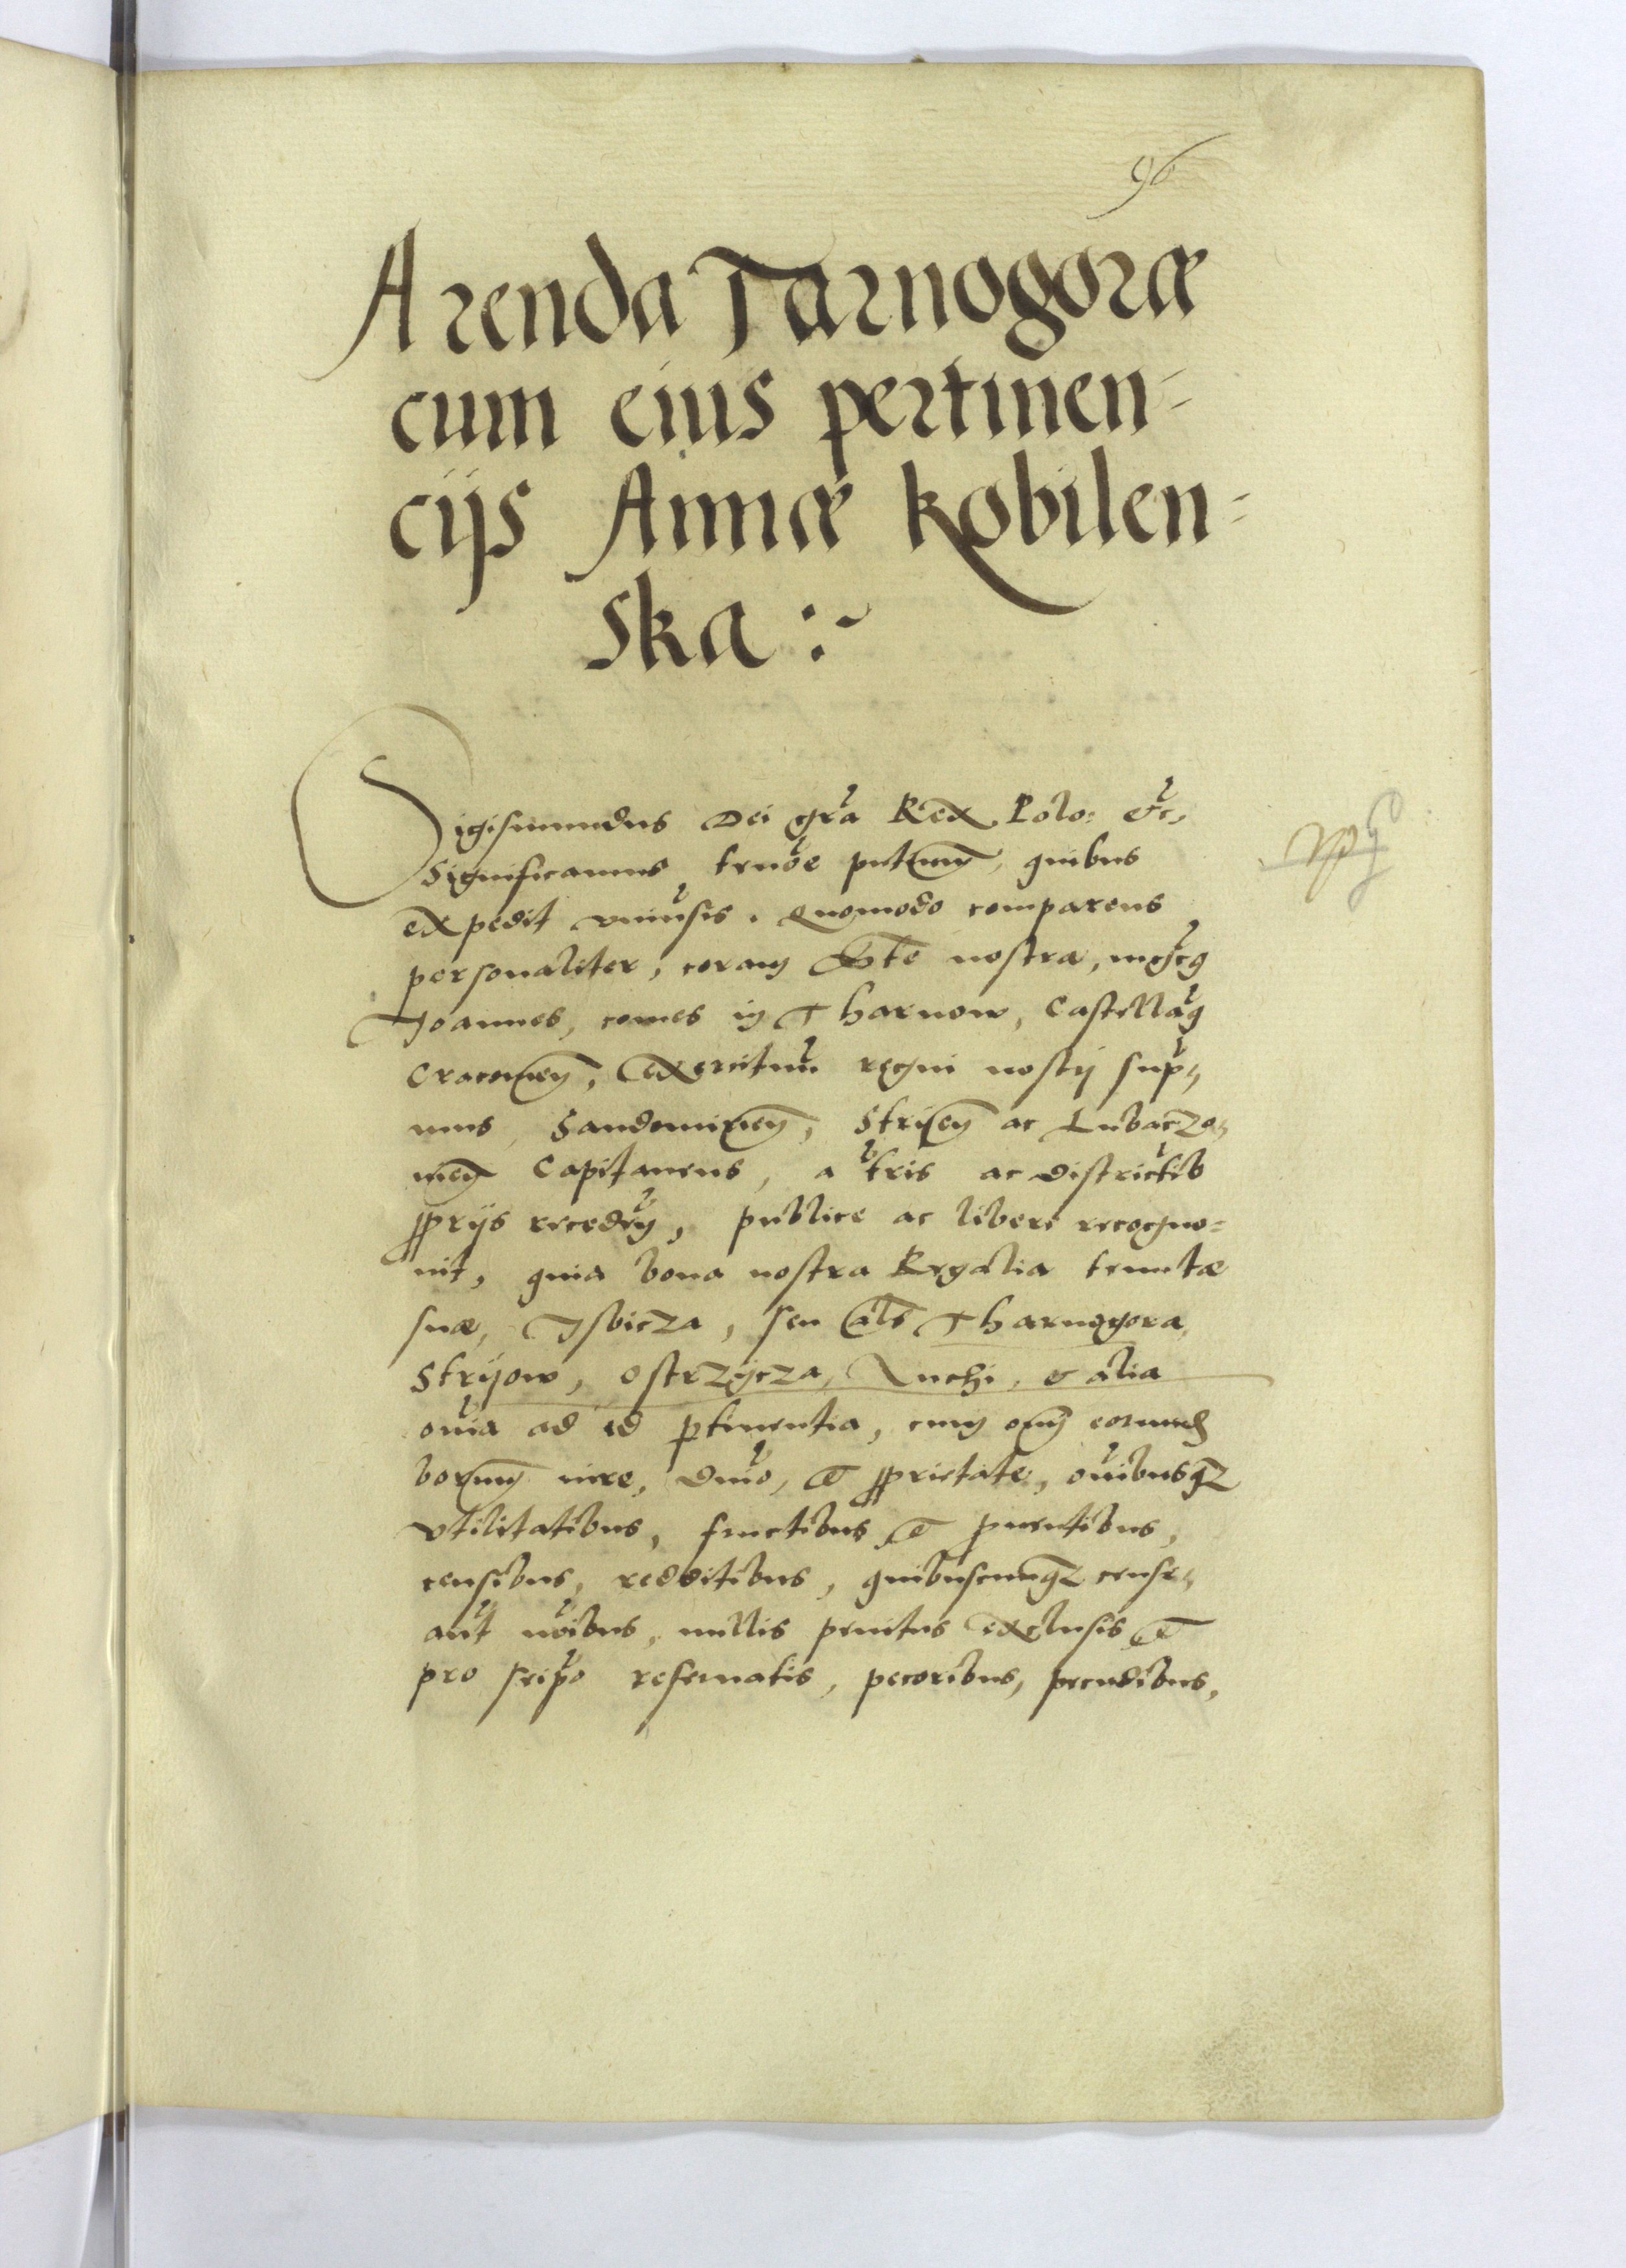 96
Arenda Tarnogoræ
cum eius pertinen-
cijs Annæ Kobilen-
ska :~
Sigismundus Dei gra Rex Polo: &c,
Significamus tenōe pntium, quibus
expedit vniusis. Quomodo comparens
personaliter, coram Mte nostra, mgfcus
Joannes, comes in Tharnow, Castellanus
Cracouien, Exercituum regni nostri sup,,
mus, Sandomirien, Strien ac Lubaczo,,
uien Capitaneus, a tris ac districtib
pprijs reced, publice ac libere recogno-
uit, quia bona nostra Regalia tenutæ
suæ, Isbicza, seu als Tharnogora,
Stryow, Ostrzycza, Luchi, & alia
oia ad id ptinentia, cum omi eorumd
bonorum iure, dnio, et pprietate, oibusq3
vtilitatibus, fructibus et puentibus,
censibus, redditibus, quibuscunq3 cense,,
aut noibus, nullis penitus exclusis et
pro seipo reseruatis, pecoribus, pecudibus,